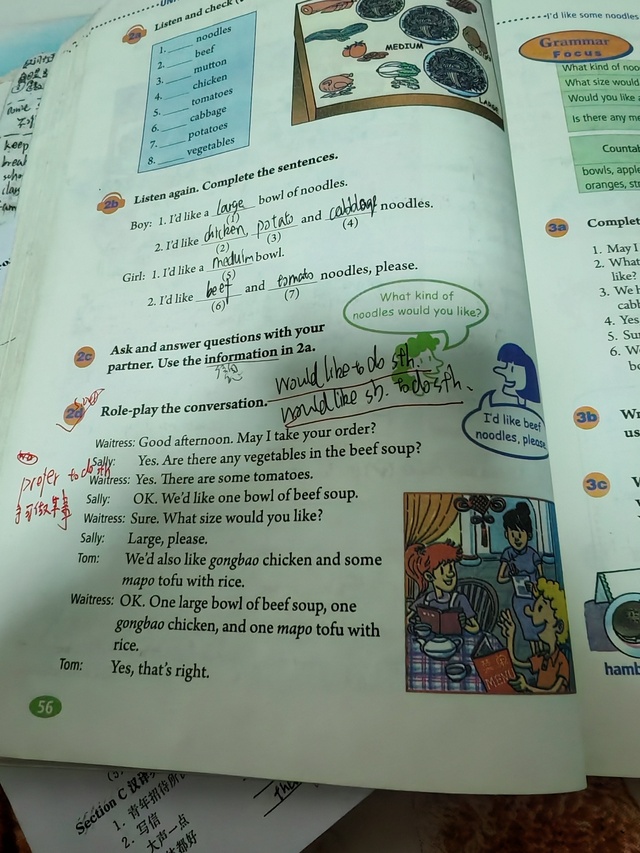 2a Listen and check (
1. ____ noodles
2. ____ beef
3. ____ mutton
4. ____ chicken
5. ____ tomatoes
6. ____ cabbage
7. ____ potatoes
8. ____ vegetables
MEDIUM
LARGE
2b Listen again. Complete the sentences.
Boy: 1. I'd like a large bowl of noodles.
(1)
2. I'd like chicken, potato and cabbage noodles.
(2) (3) (4)
Girl: 1. I'd like a meduim bowl.
(5)
2. I'd like beef and tomato noodles, please.
(6) (7)
What kind of
noodles would you like?
2c Ask and answer questions with your
partner. Use the information in 2a.
would like to do sth.
would like sb. to do sth.
I'd like beef
noodles, please.
2d Role-play the conversation.
Waitress: Good afternoon. May I take your order?
Sally: Yes. Are there any vegetables in the beef soup?
Waitress: Yes. There are some tomatoes.
Sally: OK. We'd like one bowl of beef soup.
Waitress: Sure. What size would you like?
Sally: Large, please.
Tom: We'd also like gongbao chicken and some
mapo tofu with rice.
Waitress: OK. One large bowl of beef soup, one
gongbao chicken, and one mapo tofu with
rice.
Tom: Yes, that's right.
MENU
prefer to do sth
56
I'd like some noodles
Grammar
Focus
What kind of noo
What size would
Would you like a
Is there any me
Countab
bowls, apple
oranges, str
3a Complet
1. May I
2. What
like?
3. We h
cabb
4. Yes
5. Su
6. W
be
3b Wr
us
3c
hamb
Section C 汉译
1. 青年招待所
2. 写信
大声一点
都好